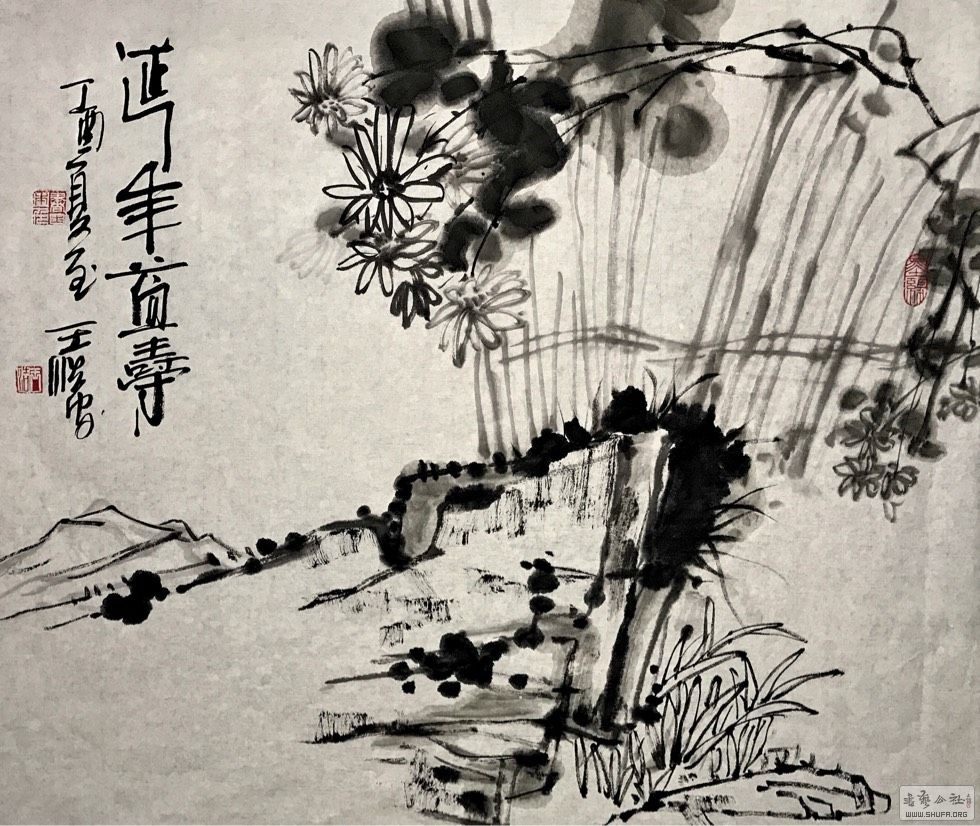 延年益壽
丁酉夏至 王
書藝公社
WWW.SHUFA.ORG